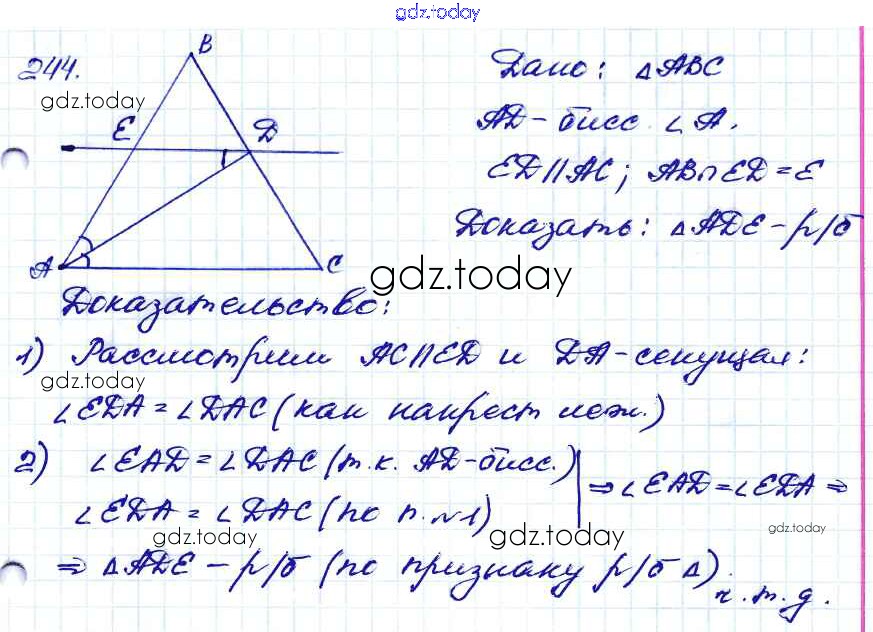 gdz.today
244.
gdz.today
B
E
D
A
C
Дано: △ABC
AD - бисс. ∠A.
ED || AC; AB ∩ ED = E
Доказать: △ADE - р/б
gdz.today
Доказательство:
1) Рассмотрим AC || ED и DA - секущая:
gdz.today
∠EDA = ∠DAC (как накрест леж.)
2) ∠EAD = ∠DAC (т.к. AD - бисс.)
∠EDA = ∠DAC (по п. №1)
⇒ ∠EAD = ∠EDA ⇒
gdz.today
gdz.today
gdz.today
⇒ △ADE - р/б (по признаку р/б △).
ч.т.д.